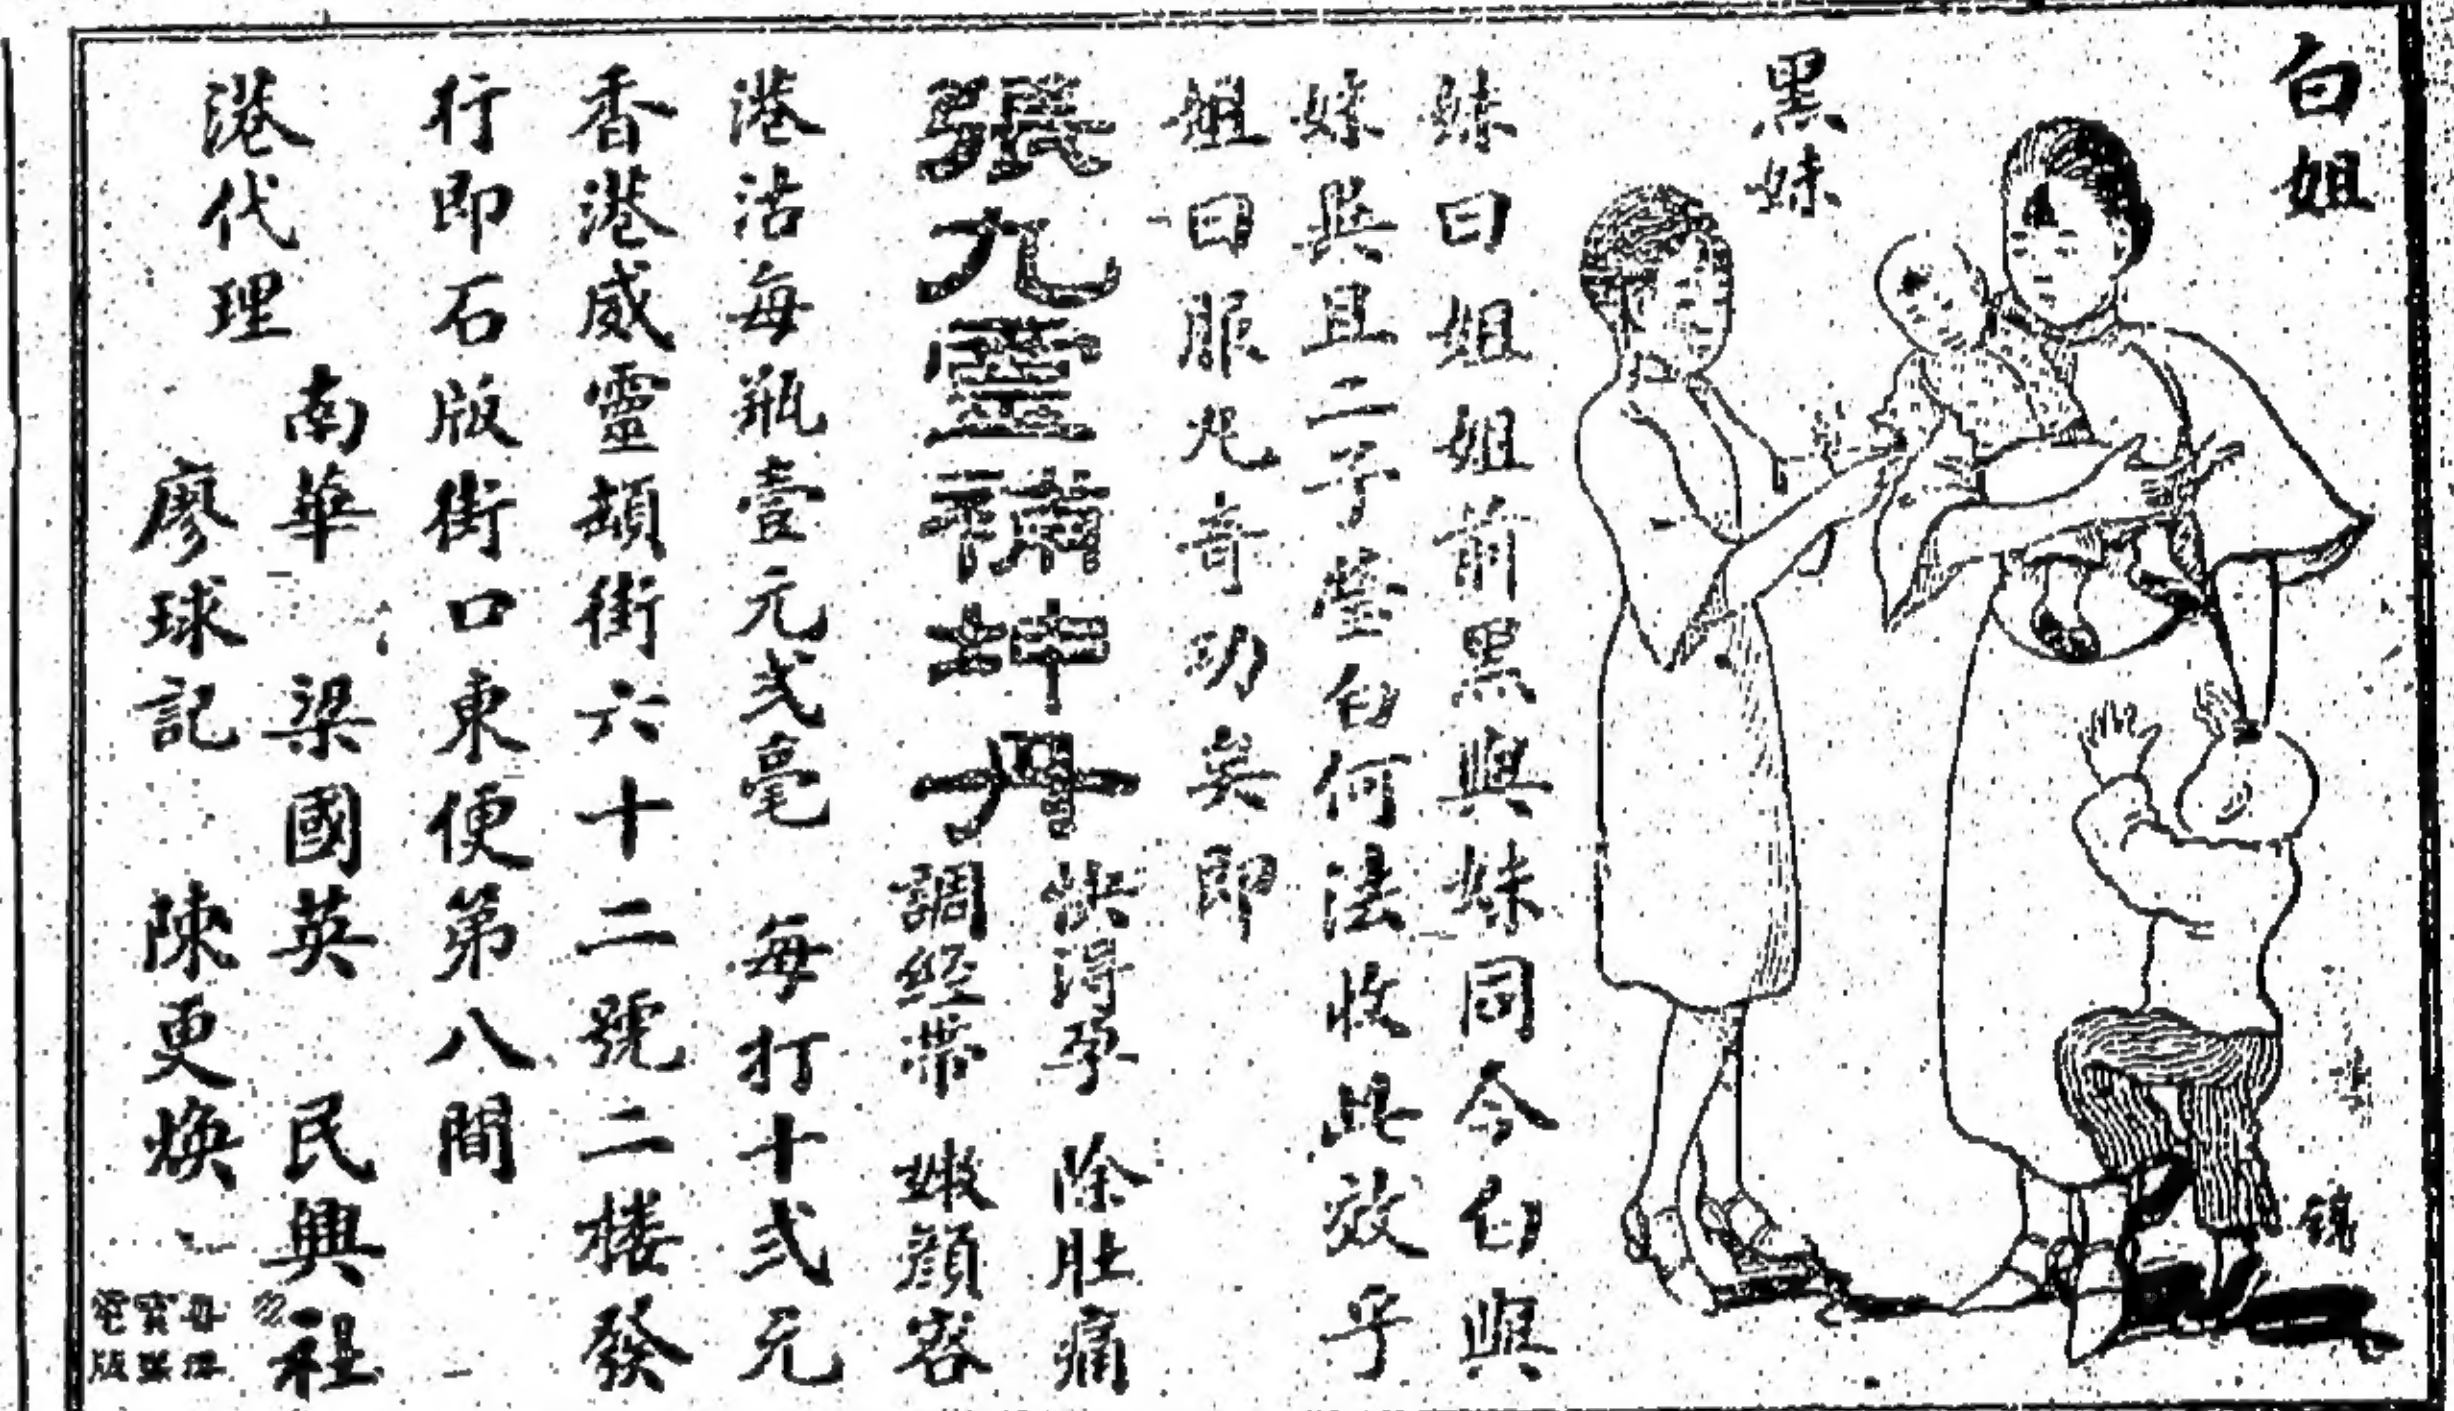 白姐
黑妹
妹曰姐姐前黑與妹同今白與
妹異且二子壹白何法收此效乎
姐曰服丸奇功矣即
張九靈補坤丹
快得孕 除肚痛
調經帶 嫩顏容
港沽每瓶壹元弍毫 每打十弍元
香港威靈頓街六十二號二樓發
行即石版街口東便第八間
港代理
南華 梁國英 民興祖
廖球記 陳更煥